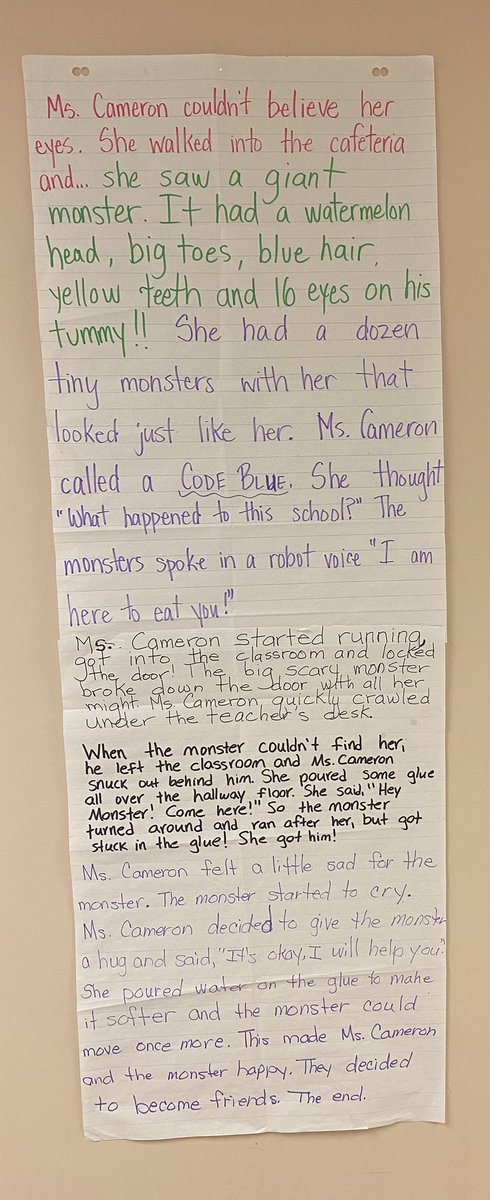 Ms. Cameron couldn't believe her
eyes. She walked into the cafeteria
and... she saw a giant
monster. It had a watermelon
head, big toes, blue hair,
yellow teeth and 16 eyes on his
tummy!! She had a dozen
tiny monsters with her that
looked just like her. Ms. Cameron
called a CODE BLUE. She thought
"What happened to this school?" The
monsters spoke in a robot voice "I am
here to eat you!"
Ms. Cameron started running,
got into the classroom and locked
the door! The big scary monster
broke down the door with all her
might. Ms. Cameron quickly crawled
under the teacher's desk.
When the monster couldn't find her,
he left the classroom and Ms. Cameron
snuck out behind him. She poured some glue
all over the hallway floor. She said, "Hey
Monster! Come here!" So the monster
turned around and ran after her, but got
stuck in the glue! She got him!
Ms. Cameron felt a little sad for the
monster. The monster started to cry.
Ms. Cameron decided to give the monster
a hug and said, "It's okay, I will help you."
She poured water on the glue to make
it softer and the monster could
move once more. This made Ms. Cameron
and the monster happy. They decided
to become friends. The end.